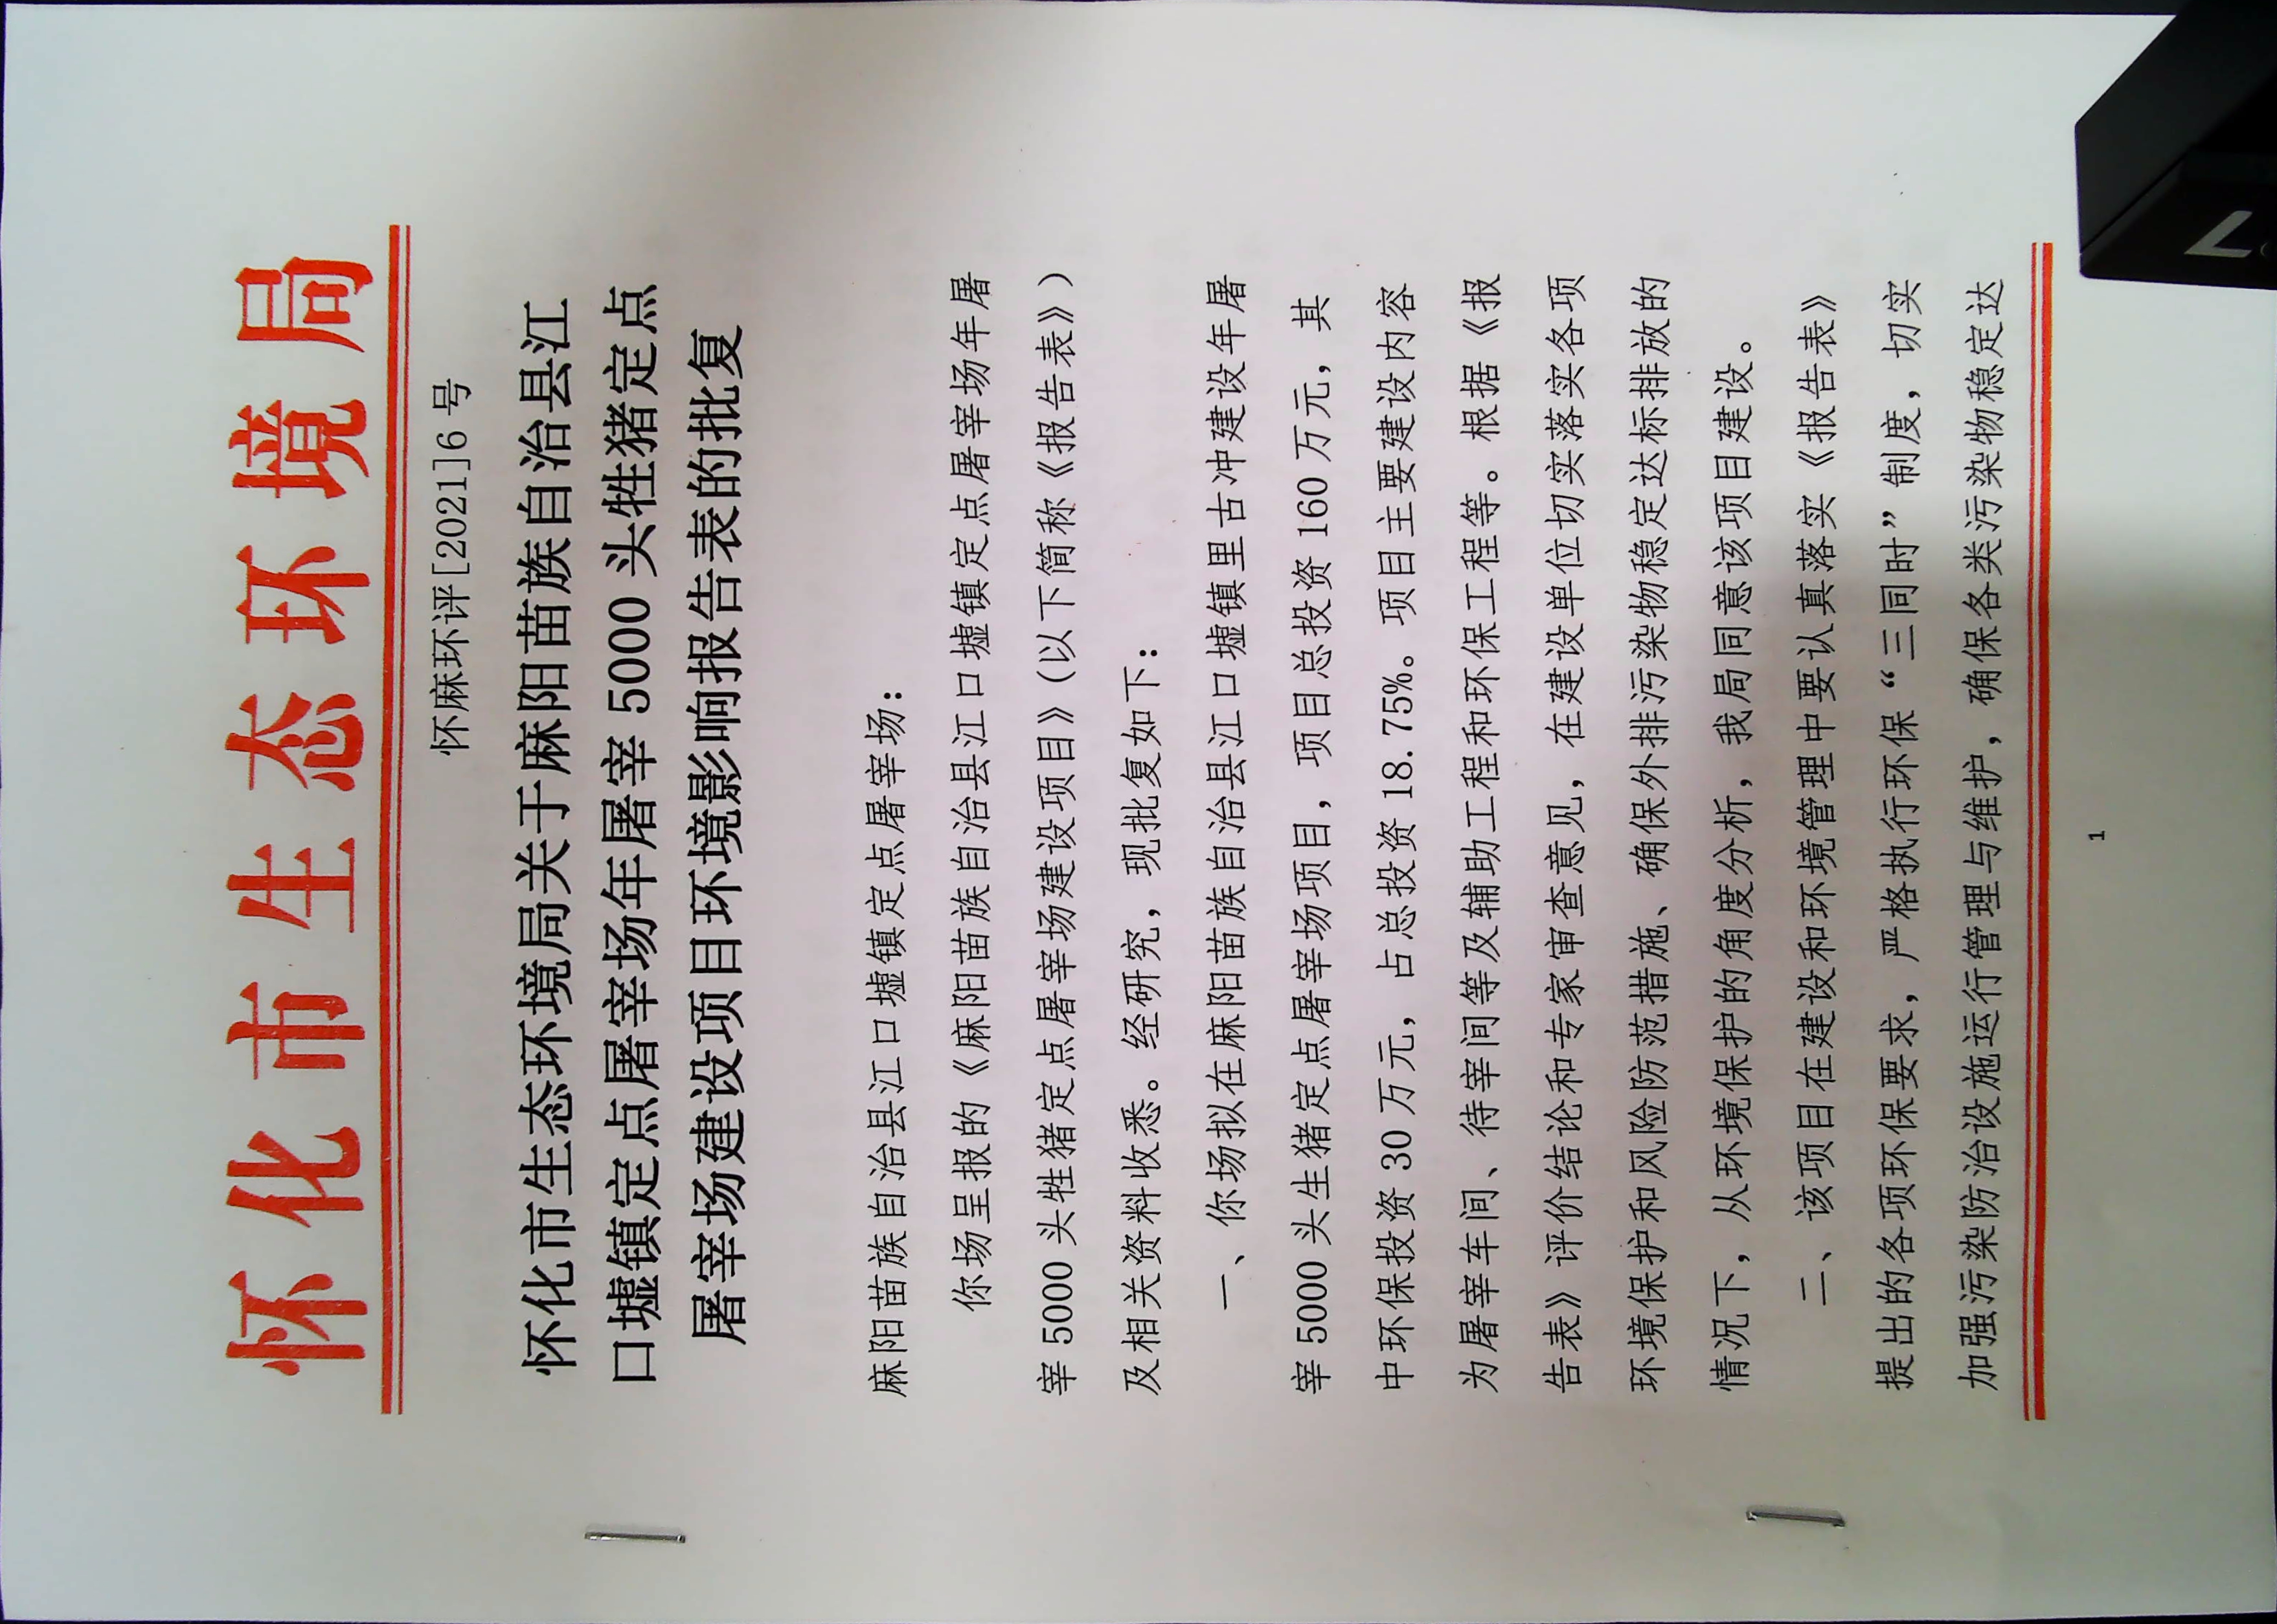 怀化市生态环境局
怀麻环评[2021]6 号
怀化市生态环境局关于麻阳苗族自治县江
口墟镇定点屠宰场年屠宰 5000 头牲猪定点
屠宰场建设项目环境影响报告表的批复
麻阳苗族自治县江口墟镇定点屠宰场：
你场呈报的《麻阳苗族自治县江口墟镇定点屠宰场年屠
宰 5000 头牲猪定点屠宰场建设项目》（以下简称《报告表》）
及相关资料收悉。经研究，现批复如下：
一、你场拟在麻阳苗族自治县江口墟镇里古冲建设年屠
宰 5000 头生猪定点屠宰场项目，项目总投资 160 万元，其
中环保投资 30 万元，占总投资 18.75%。项目主要建设内容
为屠宰车间、待宰间等及辅助工程和环保工程等。根据《报
告表》评价结论和专家审查意见，在建设单位切实落实各项
环境保护和风险防范措施、确保外排污染物稳定达标排放的
情况下，从环境保护的角度分析，我局同意该项目建设。
二、该项目在建设和环境管理中要认真落实《报告表》
提出的各项环保要求，严格执行环保“三同时”制度，切实
加强污染防治设施运行管理与维护，确保各类污染物稳定达
1